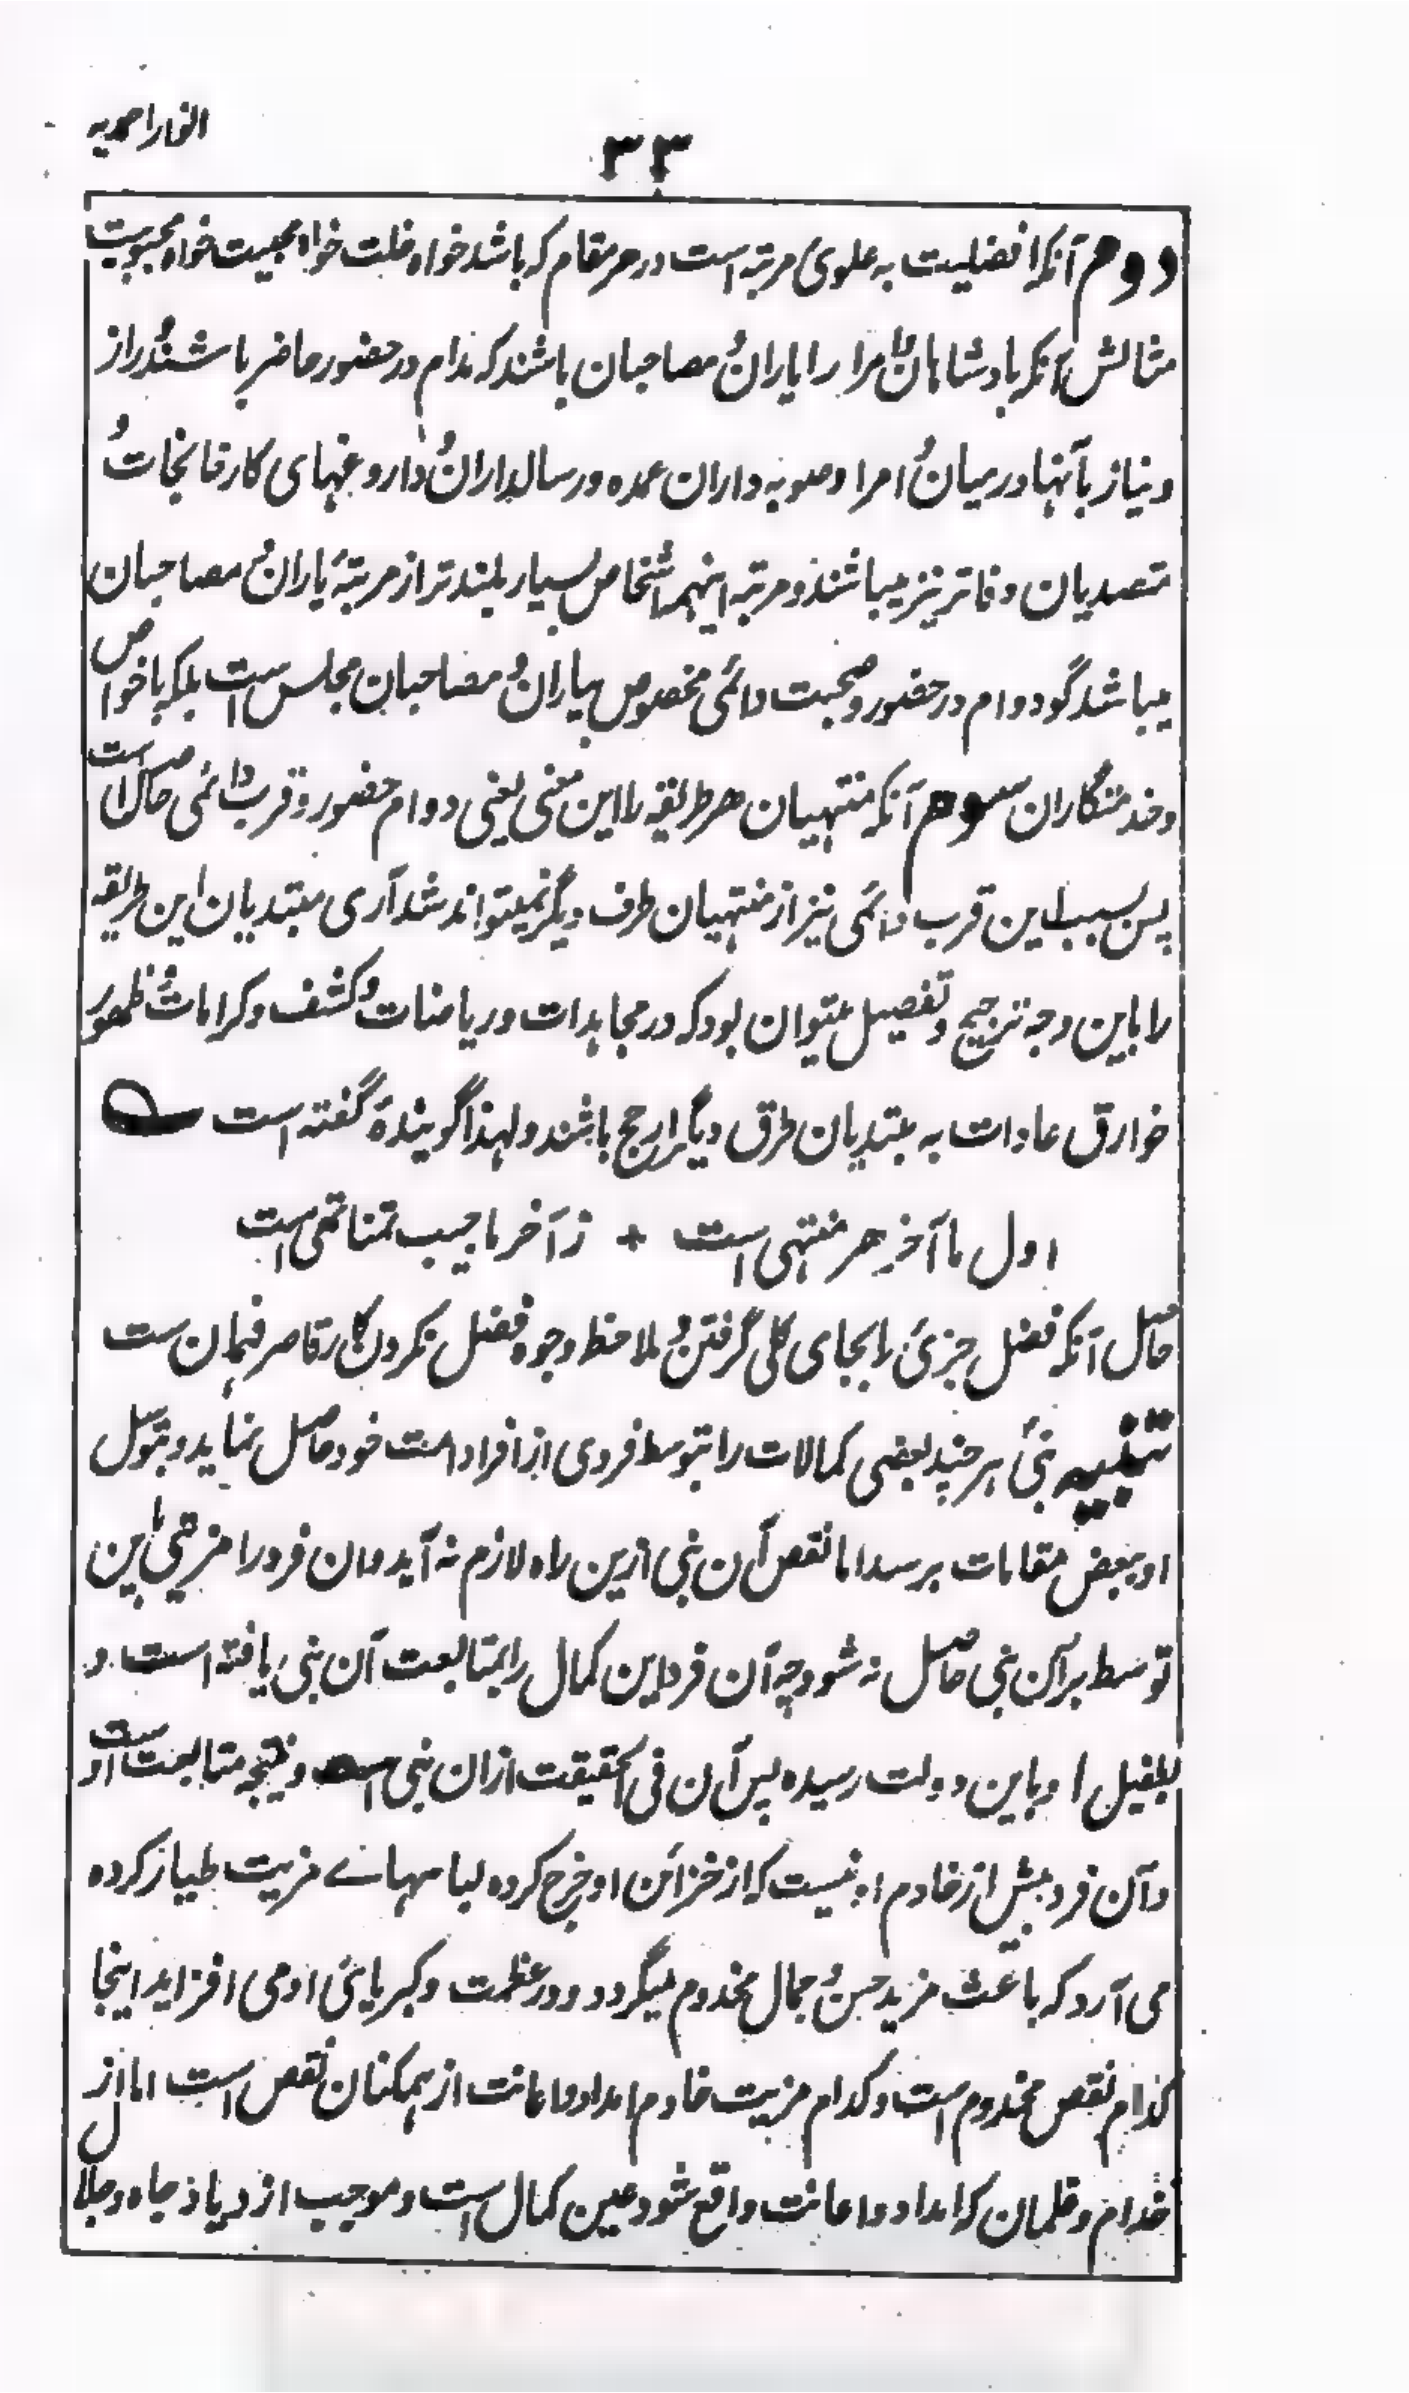 انوار احمدیه
۳۳
دوم آنکه افضلیت به علوی مرتبه است در هر مقام که باشد خواه خلت خواه محبیت خواه محبوبیت
مثالش آنکه بادشاهان و امرا را یاران و مصاحبان باشند که مدام در حضور حاضر باشند و راز
و نیاز بآنها درمیان و امرا و صوبه داران عمده و رسالداران و داروغهای کارخانجات و
متصدیان دفاتر نیز میباشند و مرتبه اینهمه اشخاص بسیار بلند تر از مرتبۀ یاران و مصاحبان
میباشد گو دوام در حضور و صحبت دائمی مخصوص بیاران و مصاحبان مجلس است بلکه باخواص
و خدمتگاران سوم آنکه منتهیان هر طریقه را این معنی یعنی دوام حضور و قرب دائمی حاصل است
پس بسبب این قرب دائمی نیز از منتهیان طرف دیگر نمیتواند شد آری مبتدیان این طریقه
را باین وجه ترجیح و تفصیل میتوان بود که در مجاهدات و ریاضات و کشف و کرامات و ظهور
خوارق عادات به مبتدیان طرق دیگر ارجح باشند و لهذا گویندۀ گفته است
اول ما آخر هر منتهی است + ز آخر ما جیب تمنا تهی است
حاصل آنکه فضل جزئ را بجای کلی گرفتن و ملاحظ وجوه فضل نکردن کار قاصر فهمان ست
تنبیه نبئ هر چند بعضی کمالات را بتوسط فردی از افراد امت خود حاصل نماید و بتوسل
او ببعض مقامات برسد اما نقص آن نبی ازین راه لازم نه آید و ان فرد را مزیتی باین
توسط بر آن نبی حاصل نه شود چه آن فرد این کمال را بمتابعت آن نبی یافته است و
بطفیل او باین دولت رسیده پس آن فی الحقیقت ازان نبی است و نتیجه متابعت اوست
و آن فرد بیش از خادم او نیست که از خزائن او خرج کرده لباسهاے مزیت طیار کرده
می آرد که باعث مزید حسن و جمال مخدوم میگردد و در عظمت و کبریائ او می افزاید اینجا
کدام نقص مخدوم است و کدام مزیت خادم امداد و اعانت از همکنان نقص است اما از
خدام و غلمان که امداد و اعانت واقع شود عین کمال است و موجب ازدیاد جاه و جلال